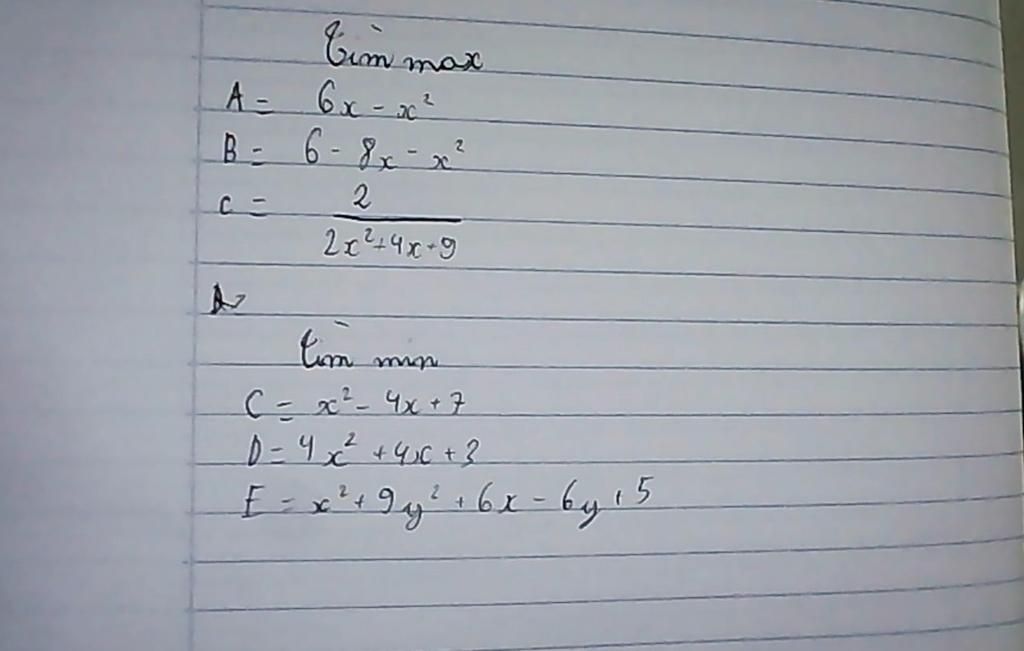 tìm max
A = 6x - x²
B = 6 - 8x - x²
C = 2 / 2x² + 4x + 9
tìm min
C = x² - 4x + 7
D = 4x² + 4x + 3
E = x² + 9y² + 6x - 6y + 5